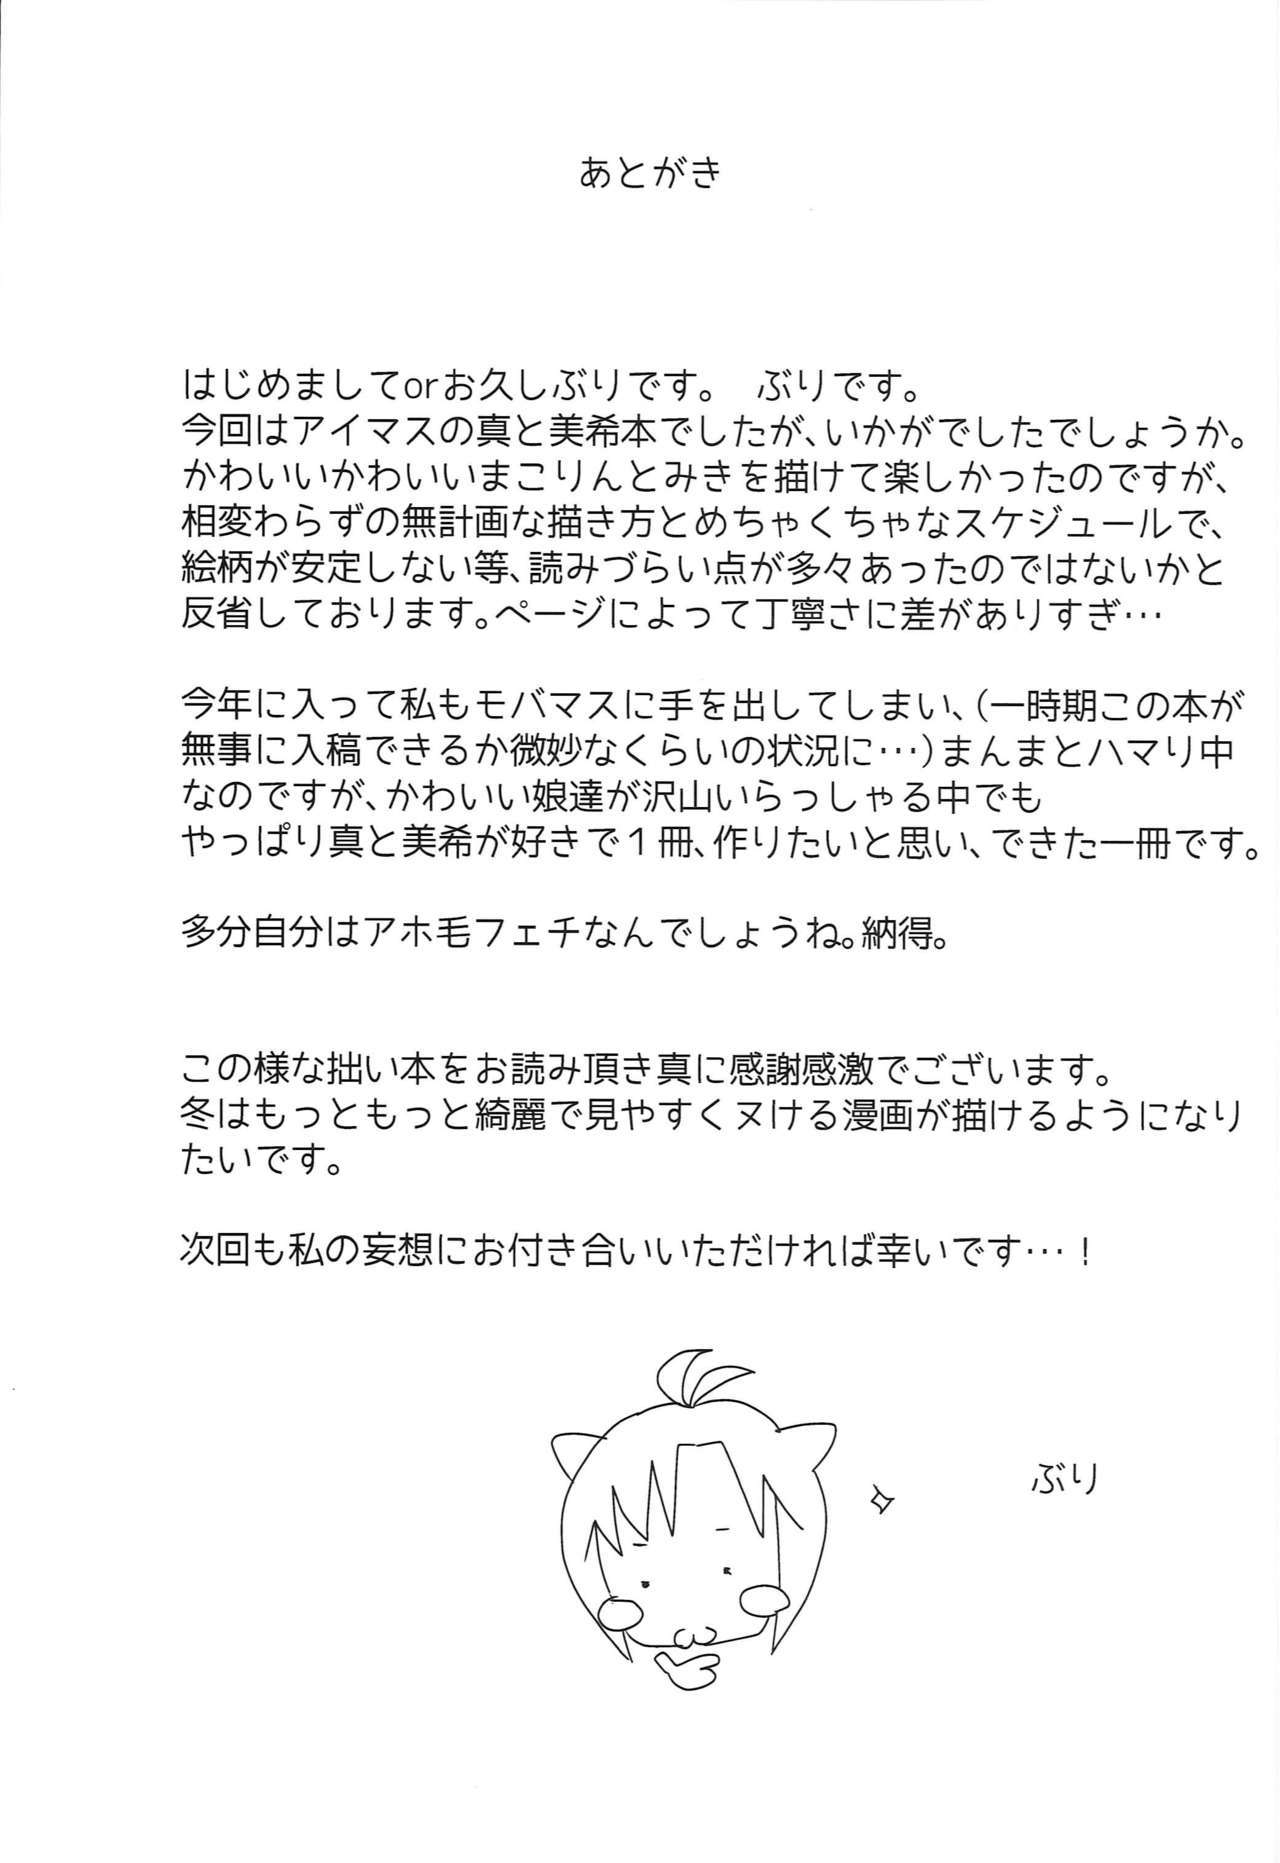 あとがき
はじめましてorお久しぶりです。　ぶりです。
今回はアイマスの真と美希本でしたが、いかがでしたでしょうか。
かわいいかわいいまこりんとみきを描けて楽しかったのですが、
相変わらずの無計画な描き方とめちゃくちゃなスケジュールで、
絵柄が安定しない等、読みづらい点が多々あったのではないかと
反省しております。ページによって丁寧さに差がありすぎ…
今年に入って私もモバマスに手を出してしまい、（一時期この本が
無事に入稿できるか微妙なくらいの状況に…）まんまとハマり中
なのですが、かわいい娘達が沢山いらっしゃる中でも
やっぱり真と美希が好きで１冊、作りたいと思い、できた一冊です。
多分自分はアホ毛フェチなんでしょうね。納得。
この様な拙い本をお読み頂き真に感謝感激でございます。
冬はもっともっと綺麗で見やすくヌける漫画が描けるようになり
たいです。
次回も私の妄想にお付き合いいただければ幸いです…！
ぶり